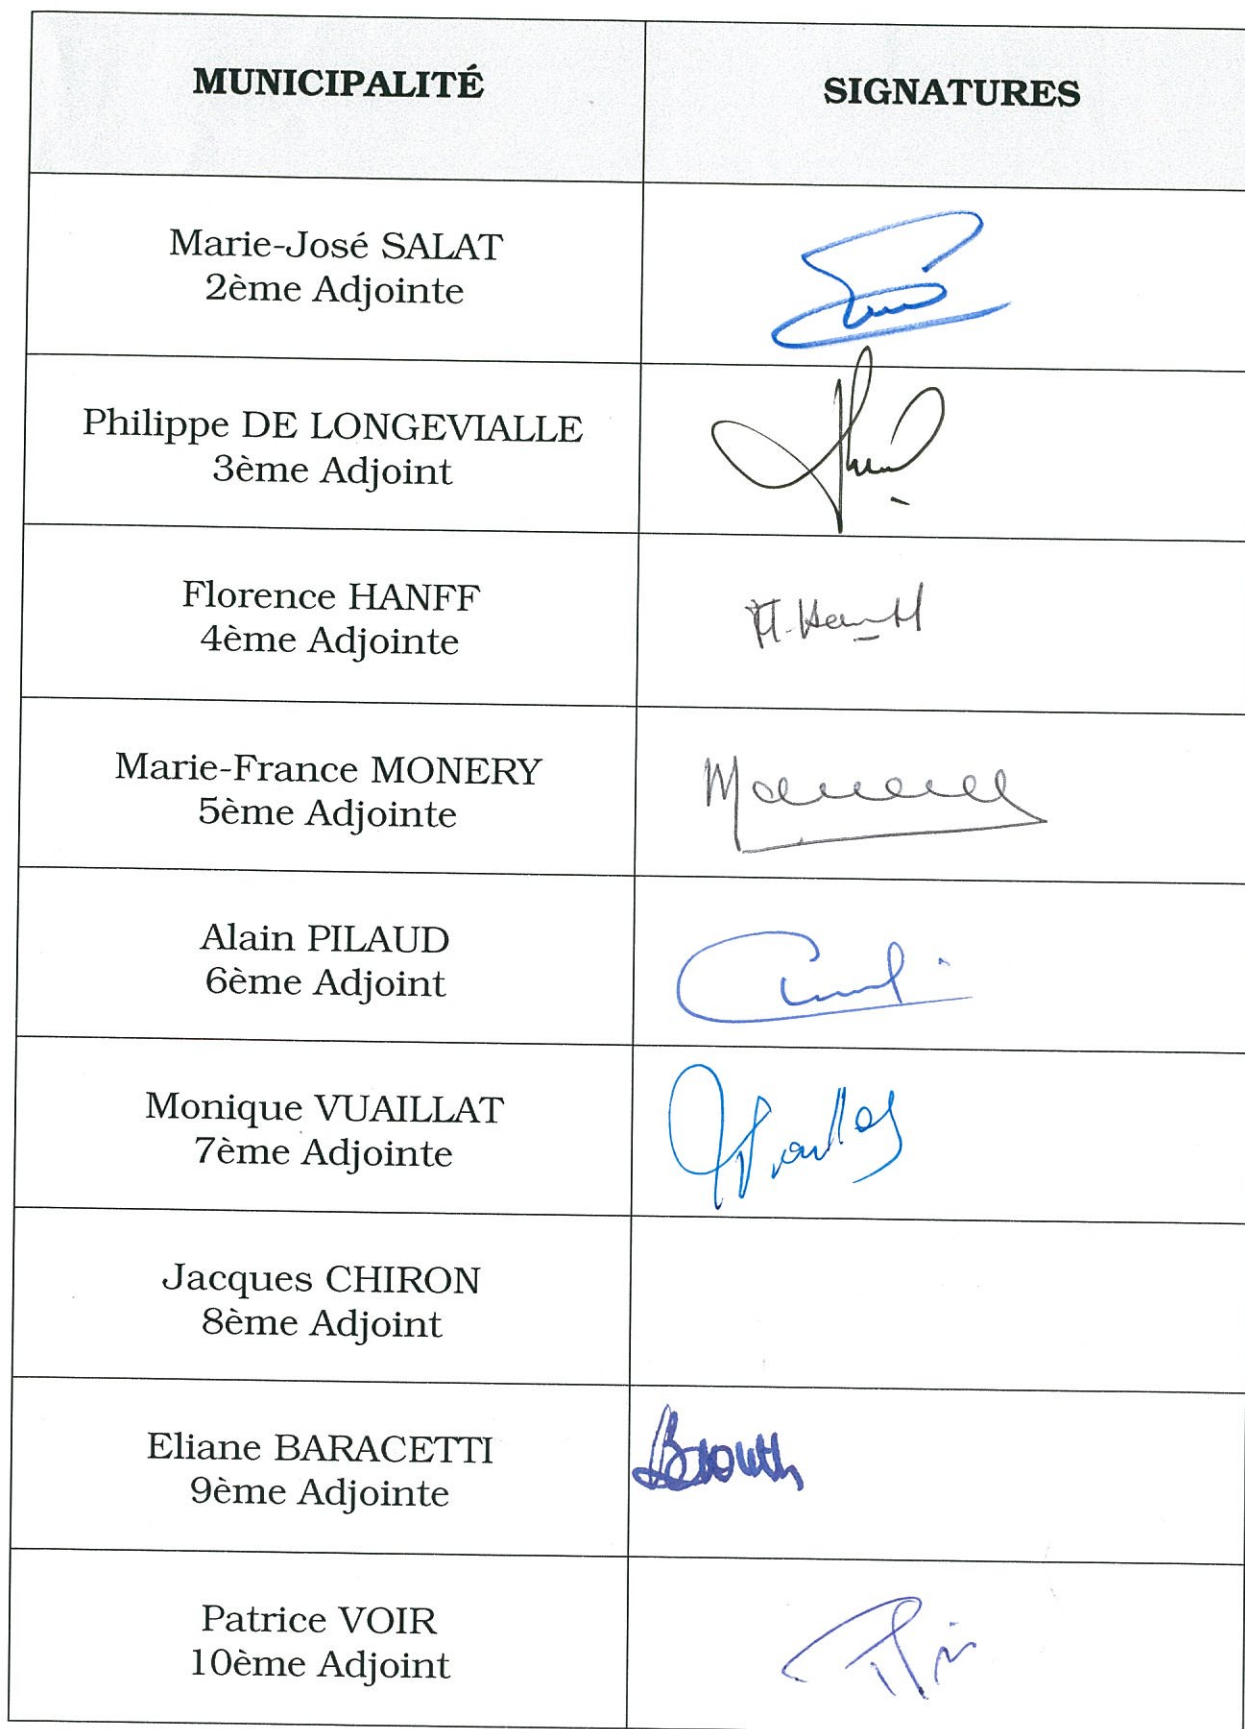 MUNICIPALITÉ
SIGNATURES
Marie-José SALAT
2ème Adjointe
Philippe DE LONGEVIALLE
3ème Adjoint
Florence HANFF
4ème Adjointe
Marie-France MONERY
5ème Adjointe
Alain PILAUD
6ème Adjoint
Monique VUAILLAT
7ème Adjointe
Jacques CHIRON
8ème Adjoint
Eliane BARACETTI
9ème Adjointe
Patrice VOIR
10ème Adjoint